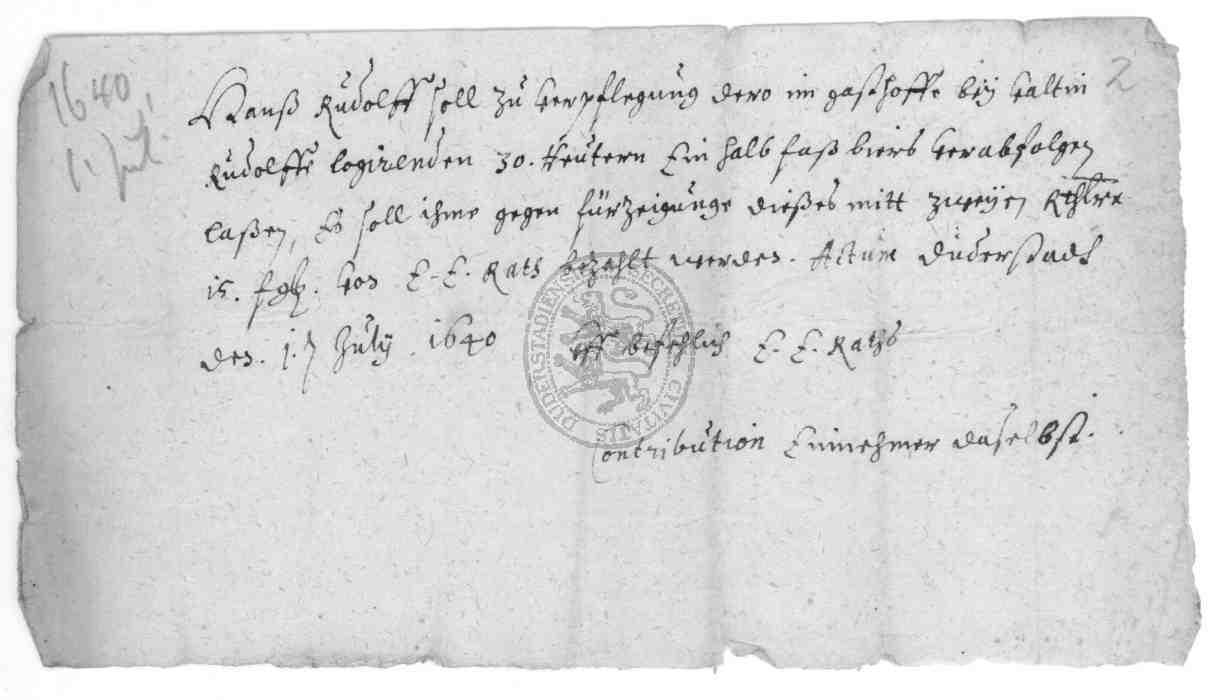 1640,
1. Jul.
2
Hanß Rudolff soll zu verpflegung dero im gasthoffe bey Valtin
Rudolffs logirenden 30. Reutern Ein halb faß biers verabfolgen
laßen, Es soll ihme gegen fürzeigunge dießes mitt zweyen Rthlrn
15. fgl. von E. E. Rath bezahlt werden. Actum Duderstadt
den. 1. July. 1640 Uff befehlich E. E. Raths
Contribution Einnehmer daselbst.